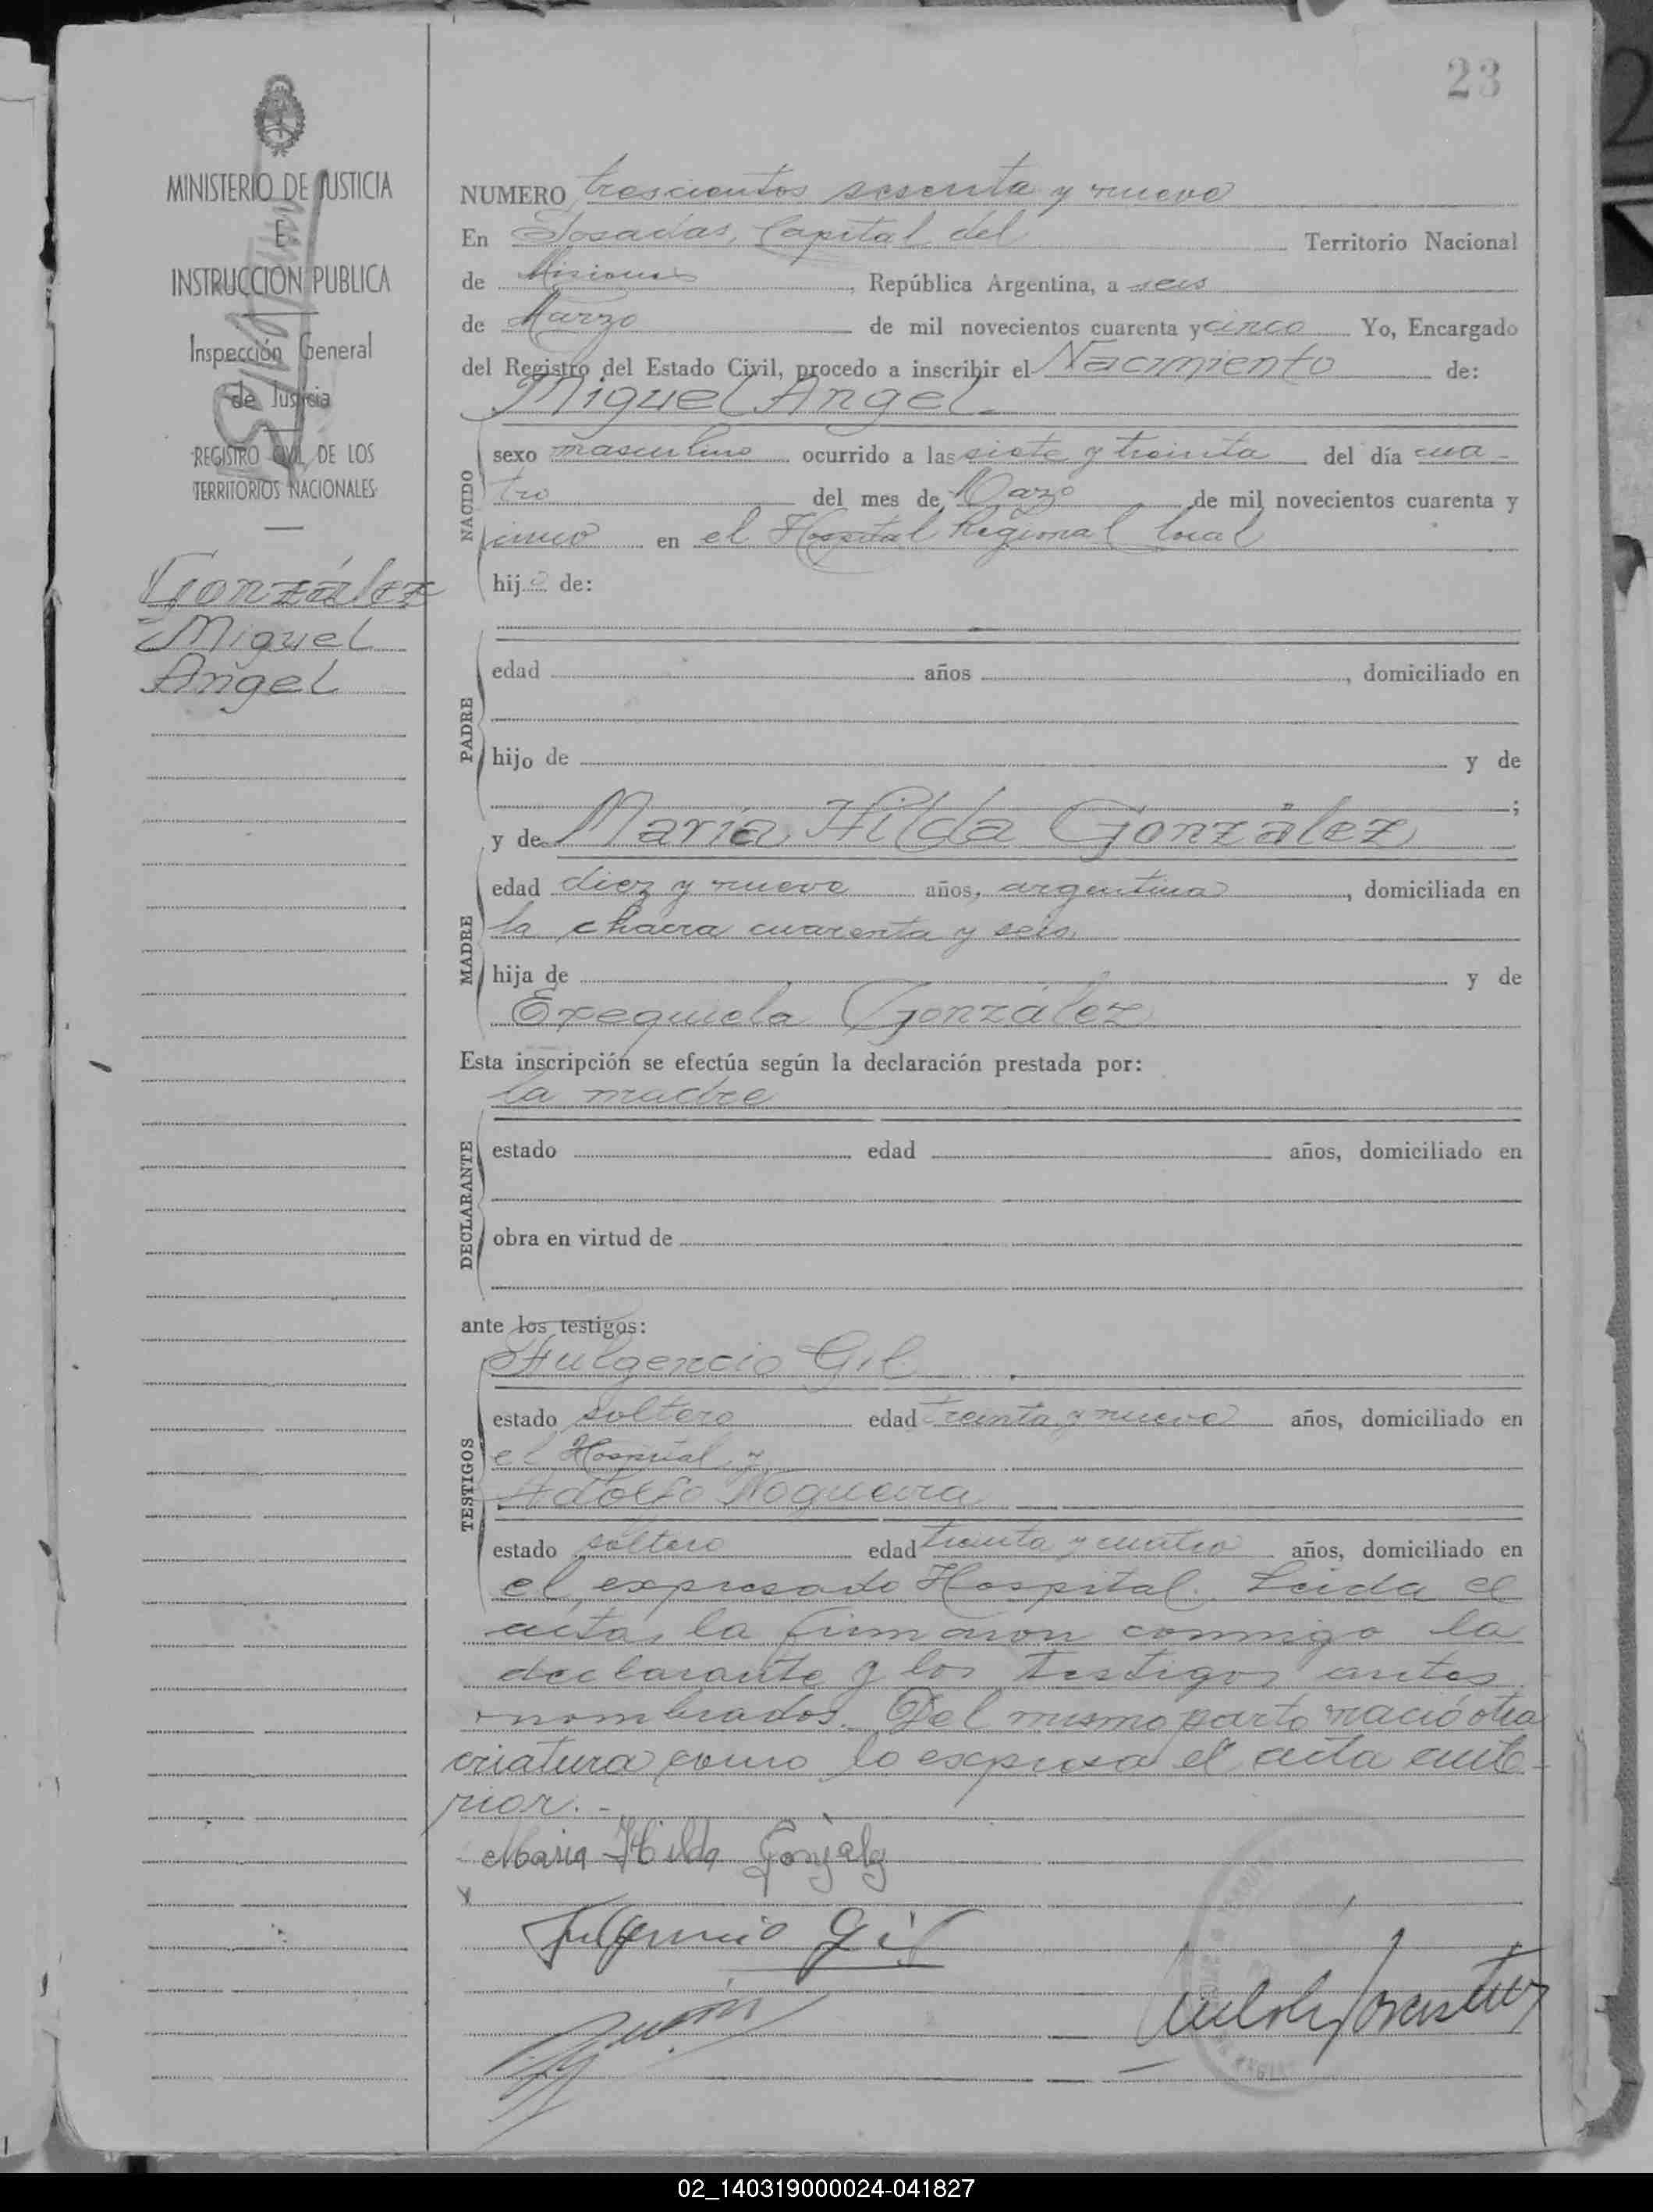 23
MINISTERIO DE JUSTICIA
E
INSTRUCCION PUBLICA
Inspección General
de Justicia
REGISTRO CIVIL DE LOS
TERRITORIOS NACIONALES
González
Miguel
Angel
NUMERO trescientos sesenta y nueve
En Posadas, Capital del Territorio Nacional
de Misiones, República Argentina, a seis
de Marzo de mil novecientos cuarenta y cinco Yo, Encargado
del Registro del Estado Civil, procedo a inscribir el Nacimiento de:
Miguel Angel
NACIDO
sexo masculino ocurrido a las siete y treinta del día cua-
tro del mes de Marzo de mil novecientos cuarenta y
cinco en el Hospital Regional local
hijo de:
PADRE
edad años , domiciliado en
hijo de y de
;
y de María Hilda González
MADRE
edad diez y nueve años, argentina, domiciliada en
la chacra cuarenta y seis
hija de y de
Exequiela González
Esta inscripción se efectúa según la declaración prestada por:
la madre
DECLARANTE
estado edad años, domiciliado en
obra en virtud de
ante los testigos:
TESTIGOS
Fulgencio Gil
estado soltero edad treinta y nueve años, domiciliado en
el Hospital y
Adolfo Nogueira
estado soltero edad treinta y cuatro años, domiciliado en
el expresado Hospital. Leida el
acta, la firmaron conmigo la
declarante y los testigos antes
nombrados. Del mismo parto nació otra
criatura como lo expresa el acta ante-
rior.-
Maria Hilda Gonzalez
Fulgencio Gil
02_140319000024-041827